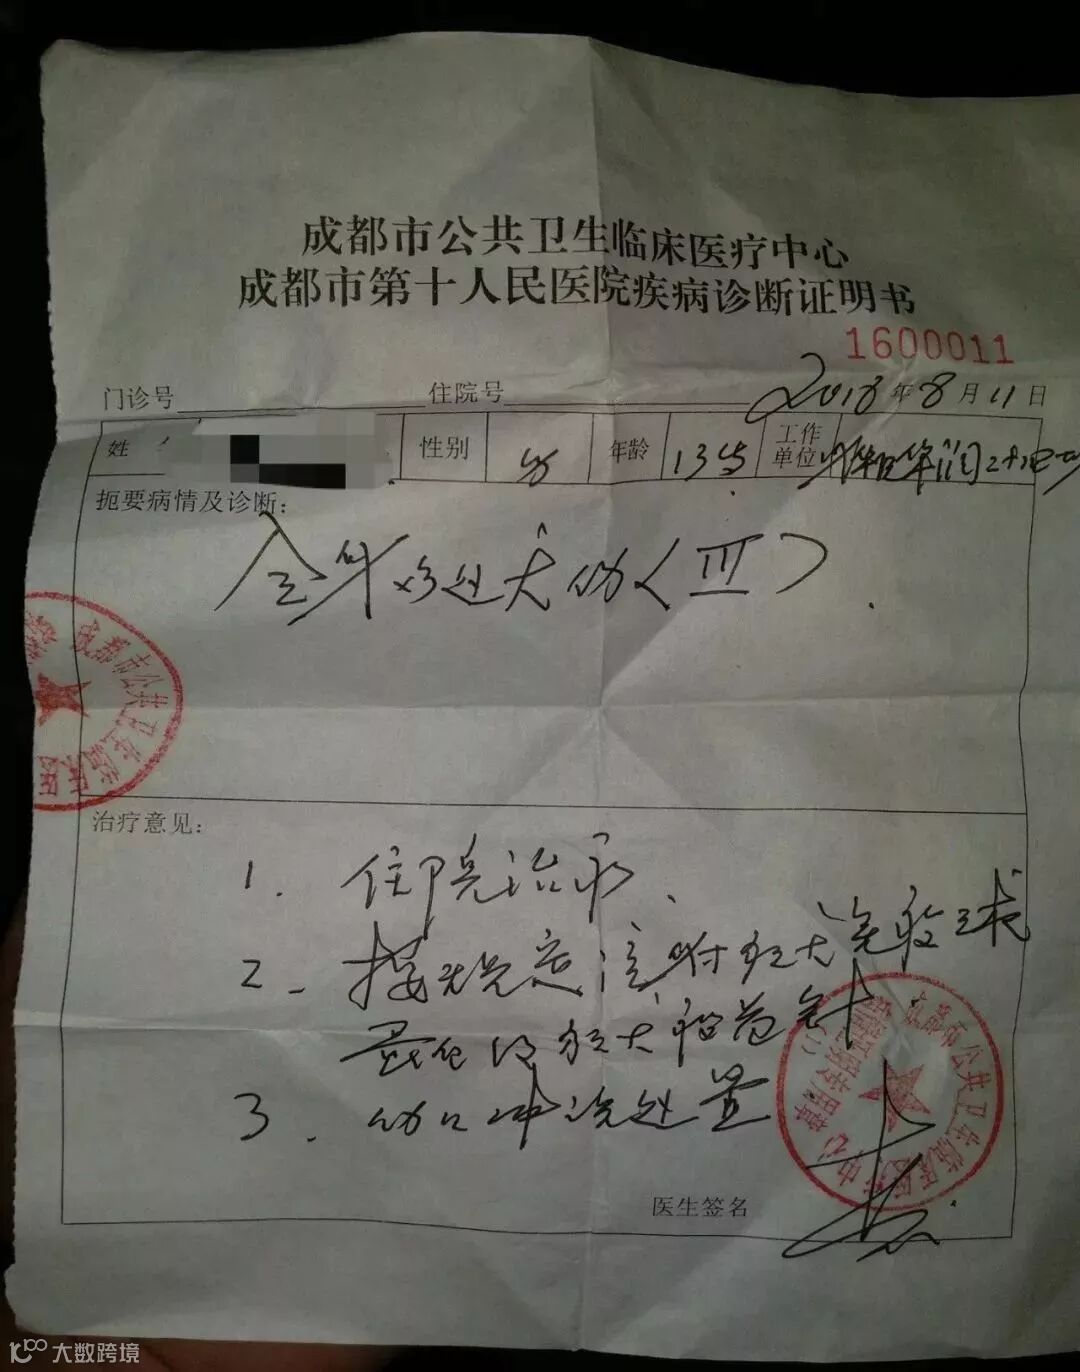 成都市公共卫生临床医疗中心
成都市第十人民医院疾病诊断证明书
1600011
门诊号 住院号 2018年8月11日
姓 性别 女 年龄 13岁 工作单位
扼要病情及诊断:
全身多处犬伤(III).
治疗意见:
1. 住院治疗.
2. 按规定注射狂犬免疫球
蛋白及狂犬病疫苗
3. 伤口冲洗处置
医生签名
成都市公共卫生临床医
成都市公共卫生临床医疗中心
大数跨境